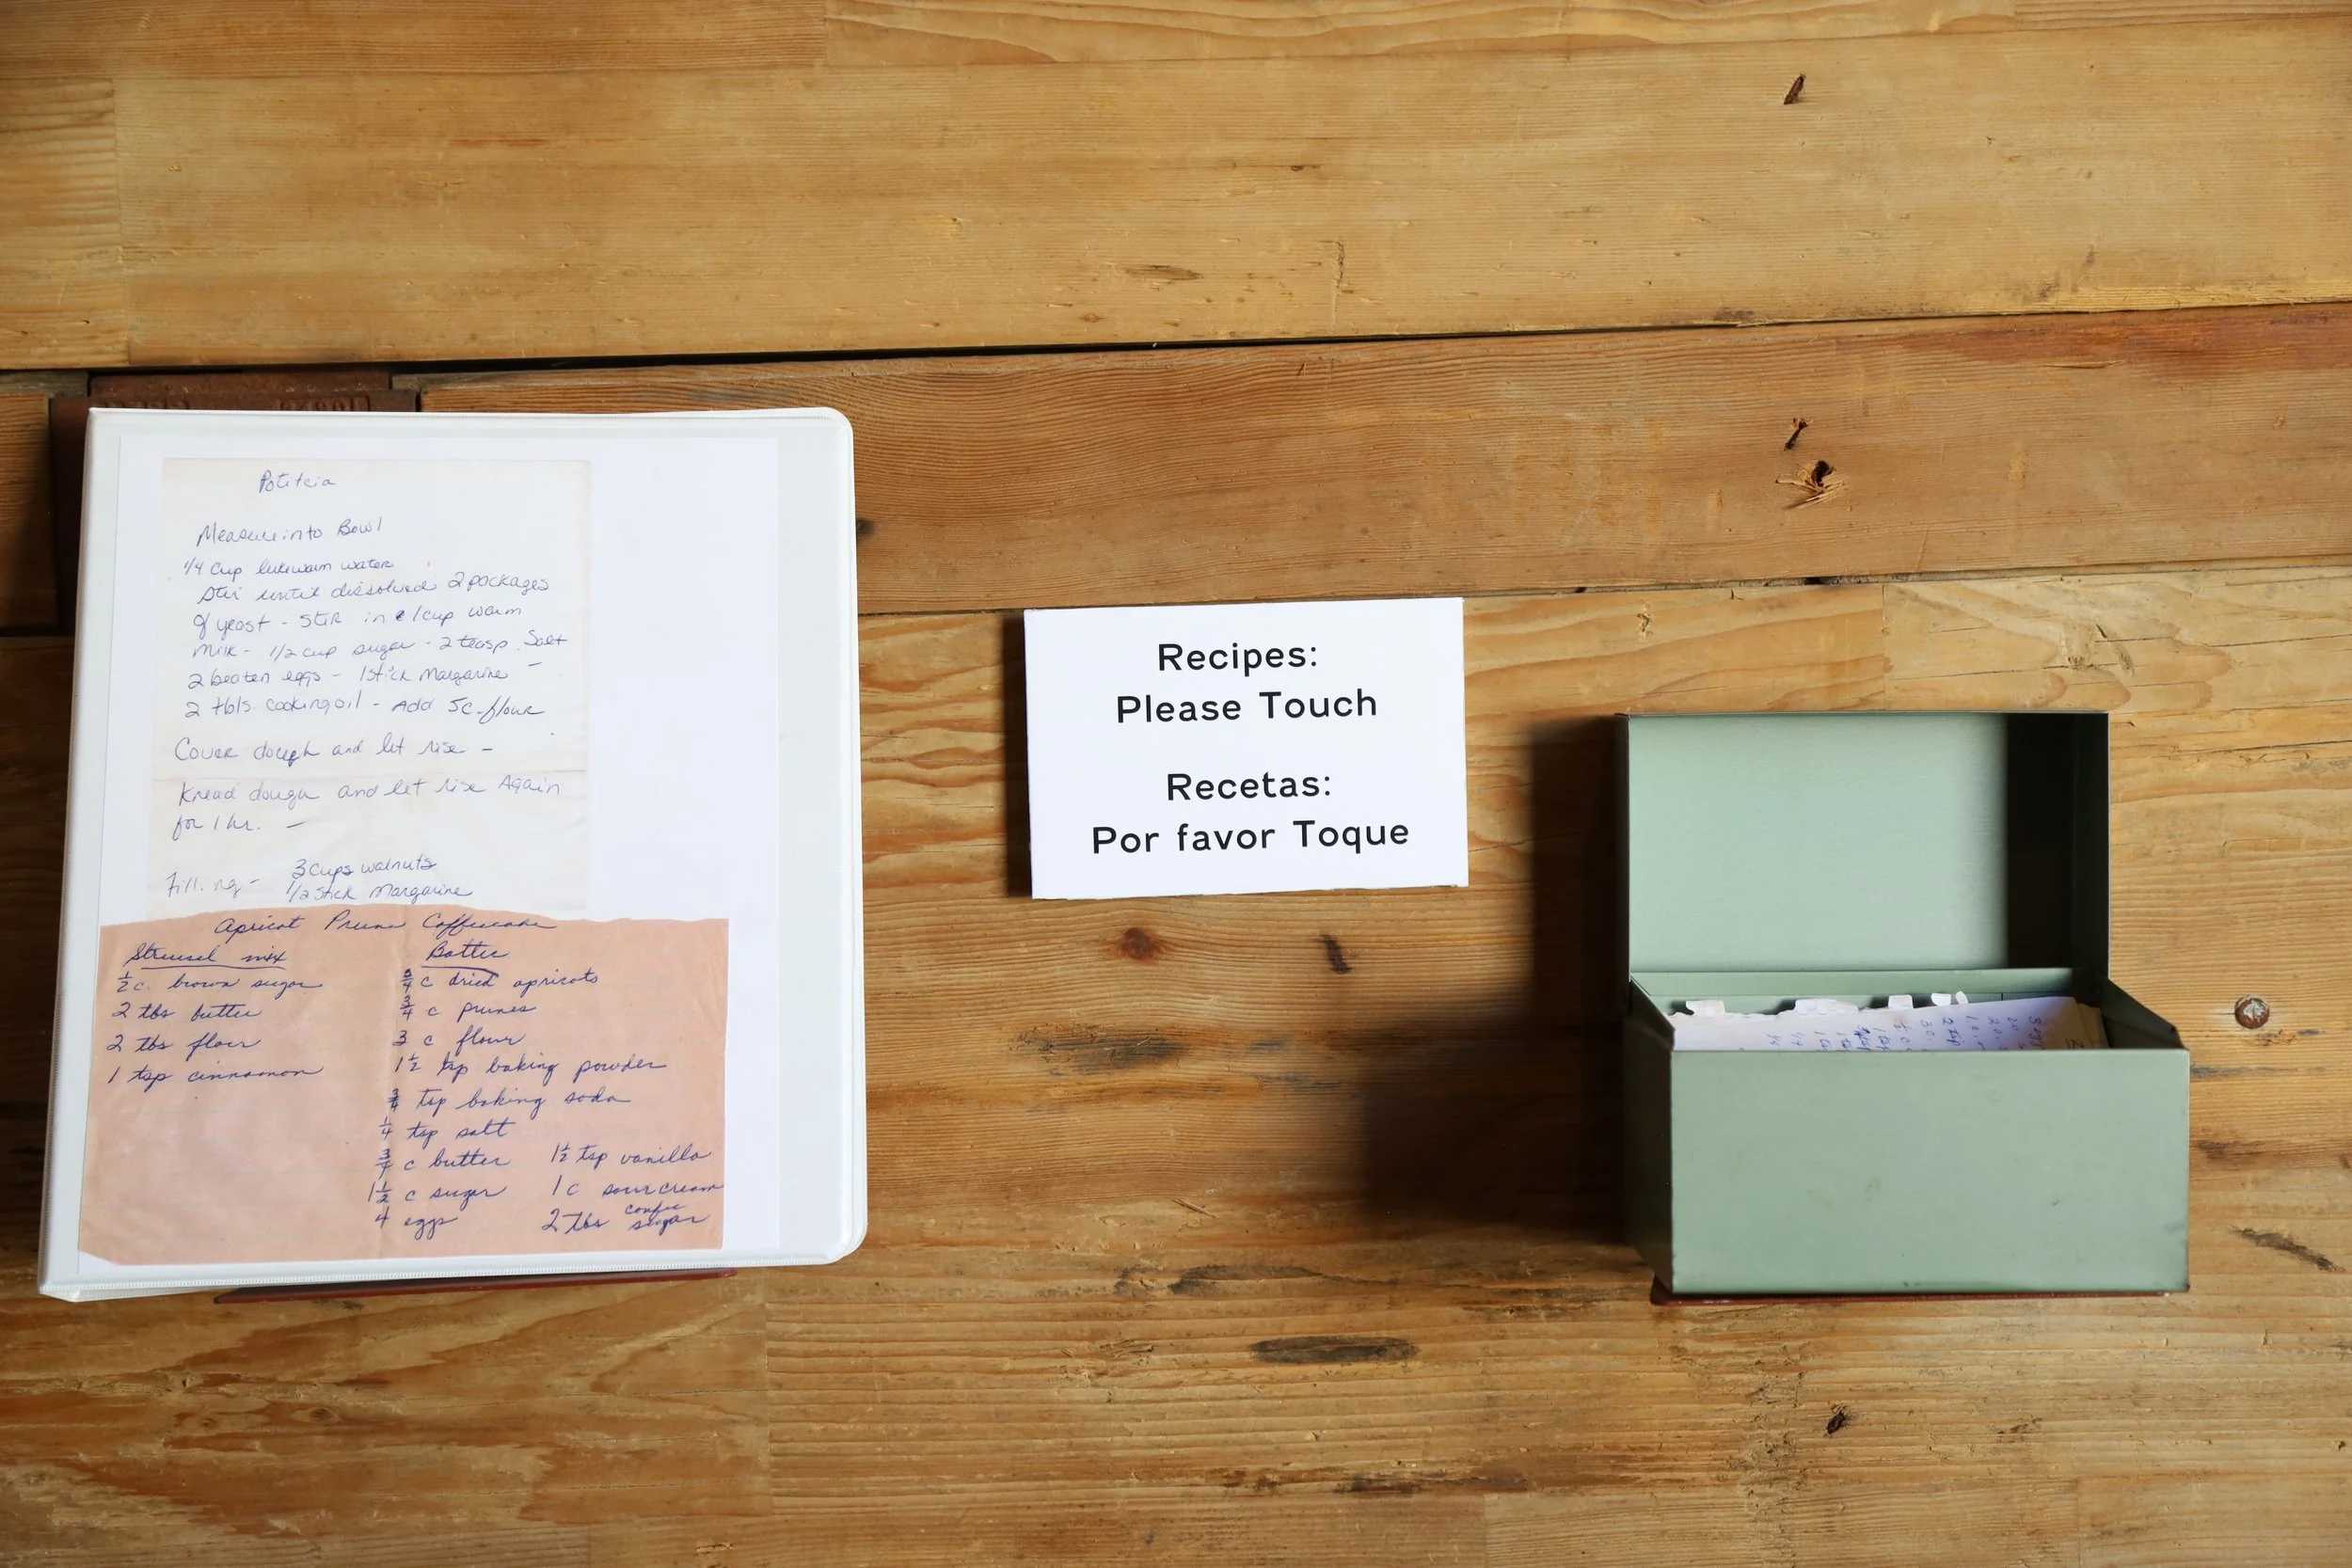 Potitcia
Measure into Bowl
1/4 cup lukewarm water
Stir until dissolved 2 packages
of yeast - Stir in 1 cup warm
Milk - 1/2 cup sugar - 2 teasp. Salt
2 beaten eggs - 1 stick Margarine -
2 tbls. cooking oil - Add 5c-flour
Cover dough and let rise -
Knead dough and let rise Again
for 1 hr. -
Filling - 3 cups walnuts
1/2 stick Margarine
Apricot Prune Coffeecake
Streusel mix
1/2 c. brown sugar
2 tbs butter
2 tbs flour
1 tsp cinnamon
Batter
3/4 c dried apricots
3/4 c prunes
3 c flour
1 1/2 tsp baking powder
3/4 tsp baking soda
1/4 tsp salt
3/4 c butter
1 1/2 c sugar
4 eggs
1 1/2 tsp vanilla
1 c sour cream
2 tbs confec sugar
Recipes:
Please Touch
Recetas:
Por favor Toque